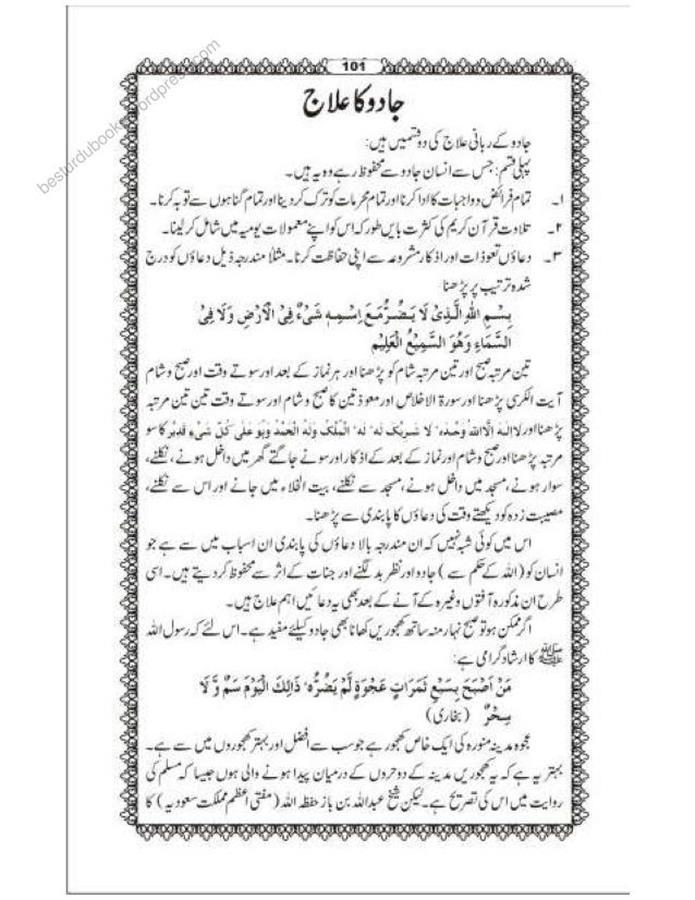 besturdubooks.wordpress.com
101
جادو کا علاج
جادو کے ربانی علاج کی دو قسمیں ہیں:
پہلی قسم: جس سے انسان جادو سے محفوظ رہے وہ یہ ہیں۔
۱۔ تمام فرائض و واجبات کا ادا کرنا اور تمام محرمات کو ترک کر دینا اور تمام گناہوں سے توبہ کرنا۔
۲۔ تلاوت قرآن کریم کی کثرت بایں طور کہ اس کو اپنے معمولات یومیہ میں شامل کر لینا۔
۳۔ دعاؤں تعوذات اور اذکار مشروعہ سے اپنی حفاظت کرنا۔ مثلاً مندرجہ ذیل دعاؤں کو درج
شدہ ترتیب پر پڑھنا
بِسْمِ اللهِ الَّذِىْ لَا يَضُرُّ مَعَ اِسْمِهٖ شَىْءٌ فِى الْاَرْضِ وَلَا فِى
السَّمَاءِ وَهُوَ السَّمِيْعُ الْعَلِيْم
تین مرتبہ صبح اور تین مرتبہ شام کو پڑھنا اور ہر نماز کے بعد اور سوتے وقت اور صبح و شام
آیت الکرسی پڑھنا اور سورۃ الاخلاص اور معوذتین کا صبح و شام اور سوتے وقت تین تین مرتبہ
پڑھنا اور لا الہ الا الله وحدہ' لا شریک لہ' لہ' الملک ولہ الحمد وہو علی کل شیءٍ قدیر کا سو
مرتبہ پڑھنا اور صبح و شام اور نماز کے بعد کے اذکار اور سونے جاگتے گھر میں داخل ہونے، نکلنے،
سوار ہونے، مسجد میں داخل ہونے، مسجد سے نکلنے، بیت الخلاء میں جانے اور اس سے نکلنے،
مصیبت زدہ کو دیکھتے وقت کی دعاؤں کا پابندی سے پڑھنا۔
اس میں کوئی شبہ نہیں کہ ان مندرجہ بالا دعاؤں کی پابندی ان اسباب میں سے ہے جو
انسان کو (اللہ کے حکم سے) جادو اور نظر بد لگنے اور جنات کے اثر سے محفوظ کر دیتے ہیں۔ اسی
طرح ان مذکورہ آفتوں وغیرہ کے آنے کے بعد بھی یہ دعائیں اہم علاج ہیں۔
اگر ممکن ہو تو صبح نہار منہ سات کھجوریں کھانا بھی جادو کیلئے مفید ہے۔ اس لئے کہ رسول اللہ
ﷺ کا ارشاد گرامی ہے:
مَنْ اَصْبَحَ بِسَبْعِ ثَمَرَاتٍ عَجْوَةٍ لَّمْ يَضُرُّه' ذَالِكَ الْيَوْمَ سَمٌ وَّ لَا
سِحْرٌ (بخاری)
عجوہ مدینہ منورہ کی ایک خاص کھجور ہے جو سب سے افضل اور بہتر کھجوروں میں سے ہے۔
بہتر یہ ہے کہ یہ کھجوریں مدینہ کے دو حروں کے درمیان پیدا ہونے والی ہوں جیسا کہ مسلم کی
روایت میں اس کی تصریح ہے۔ لیکن شیخ عبداللہ بن باز حفظہ اللہ (مفتی اعظم مملکت سعودیہ) کا